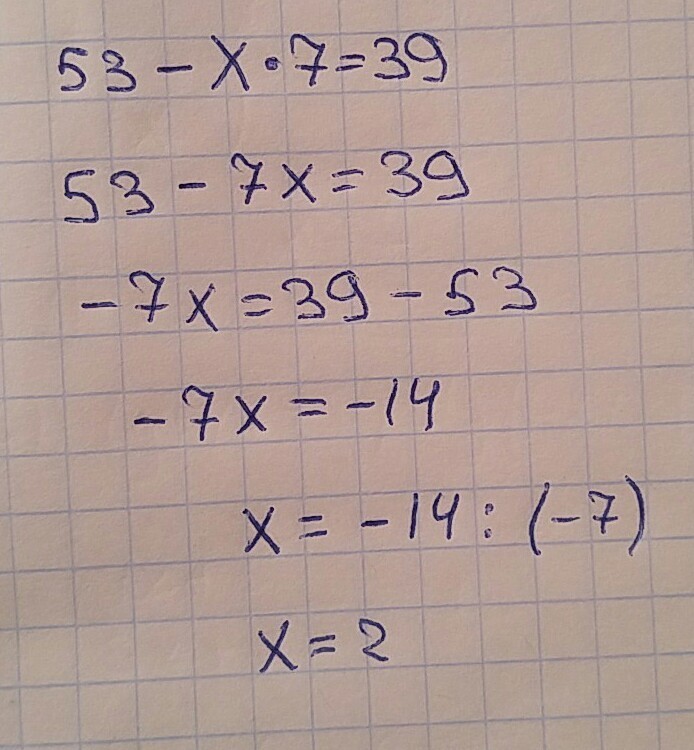 53 - x · 7 = 39
53 - 7x = 39
-7x = 39 - 53
-7x = -14
x = -14 : (-7)
x = 2